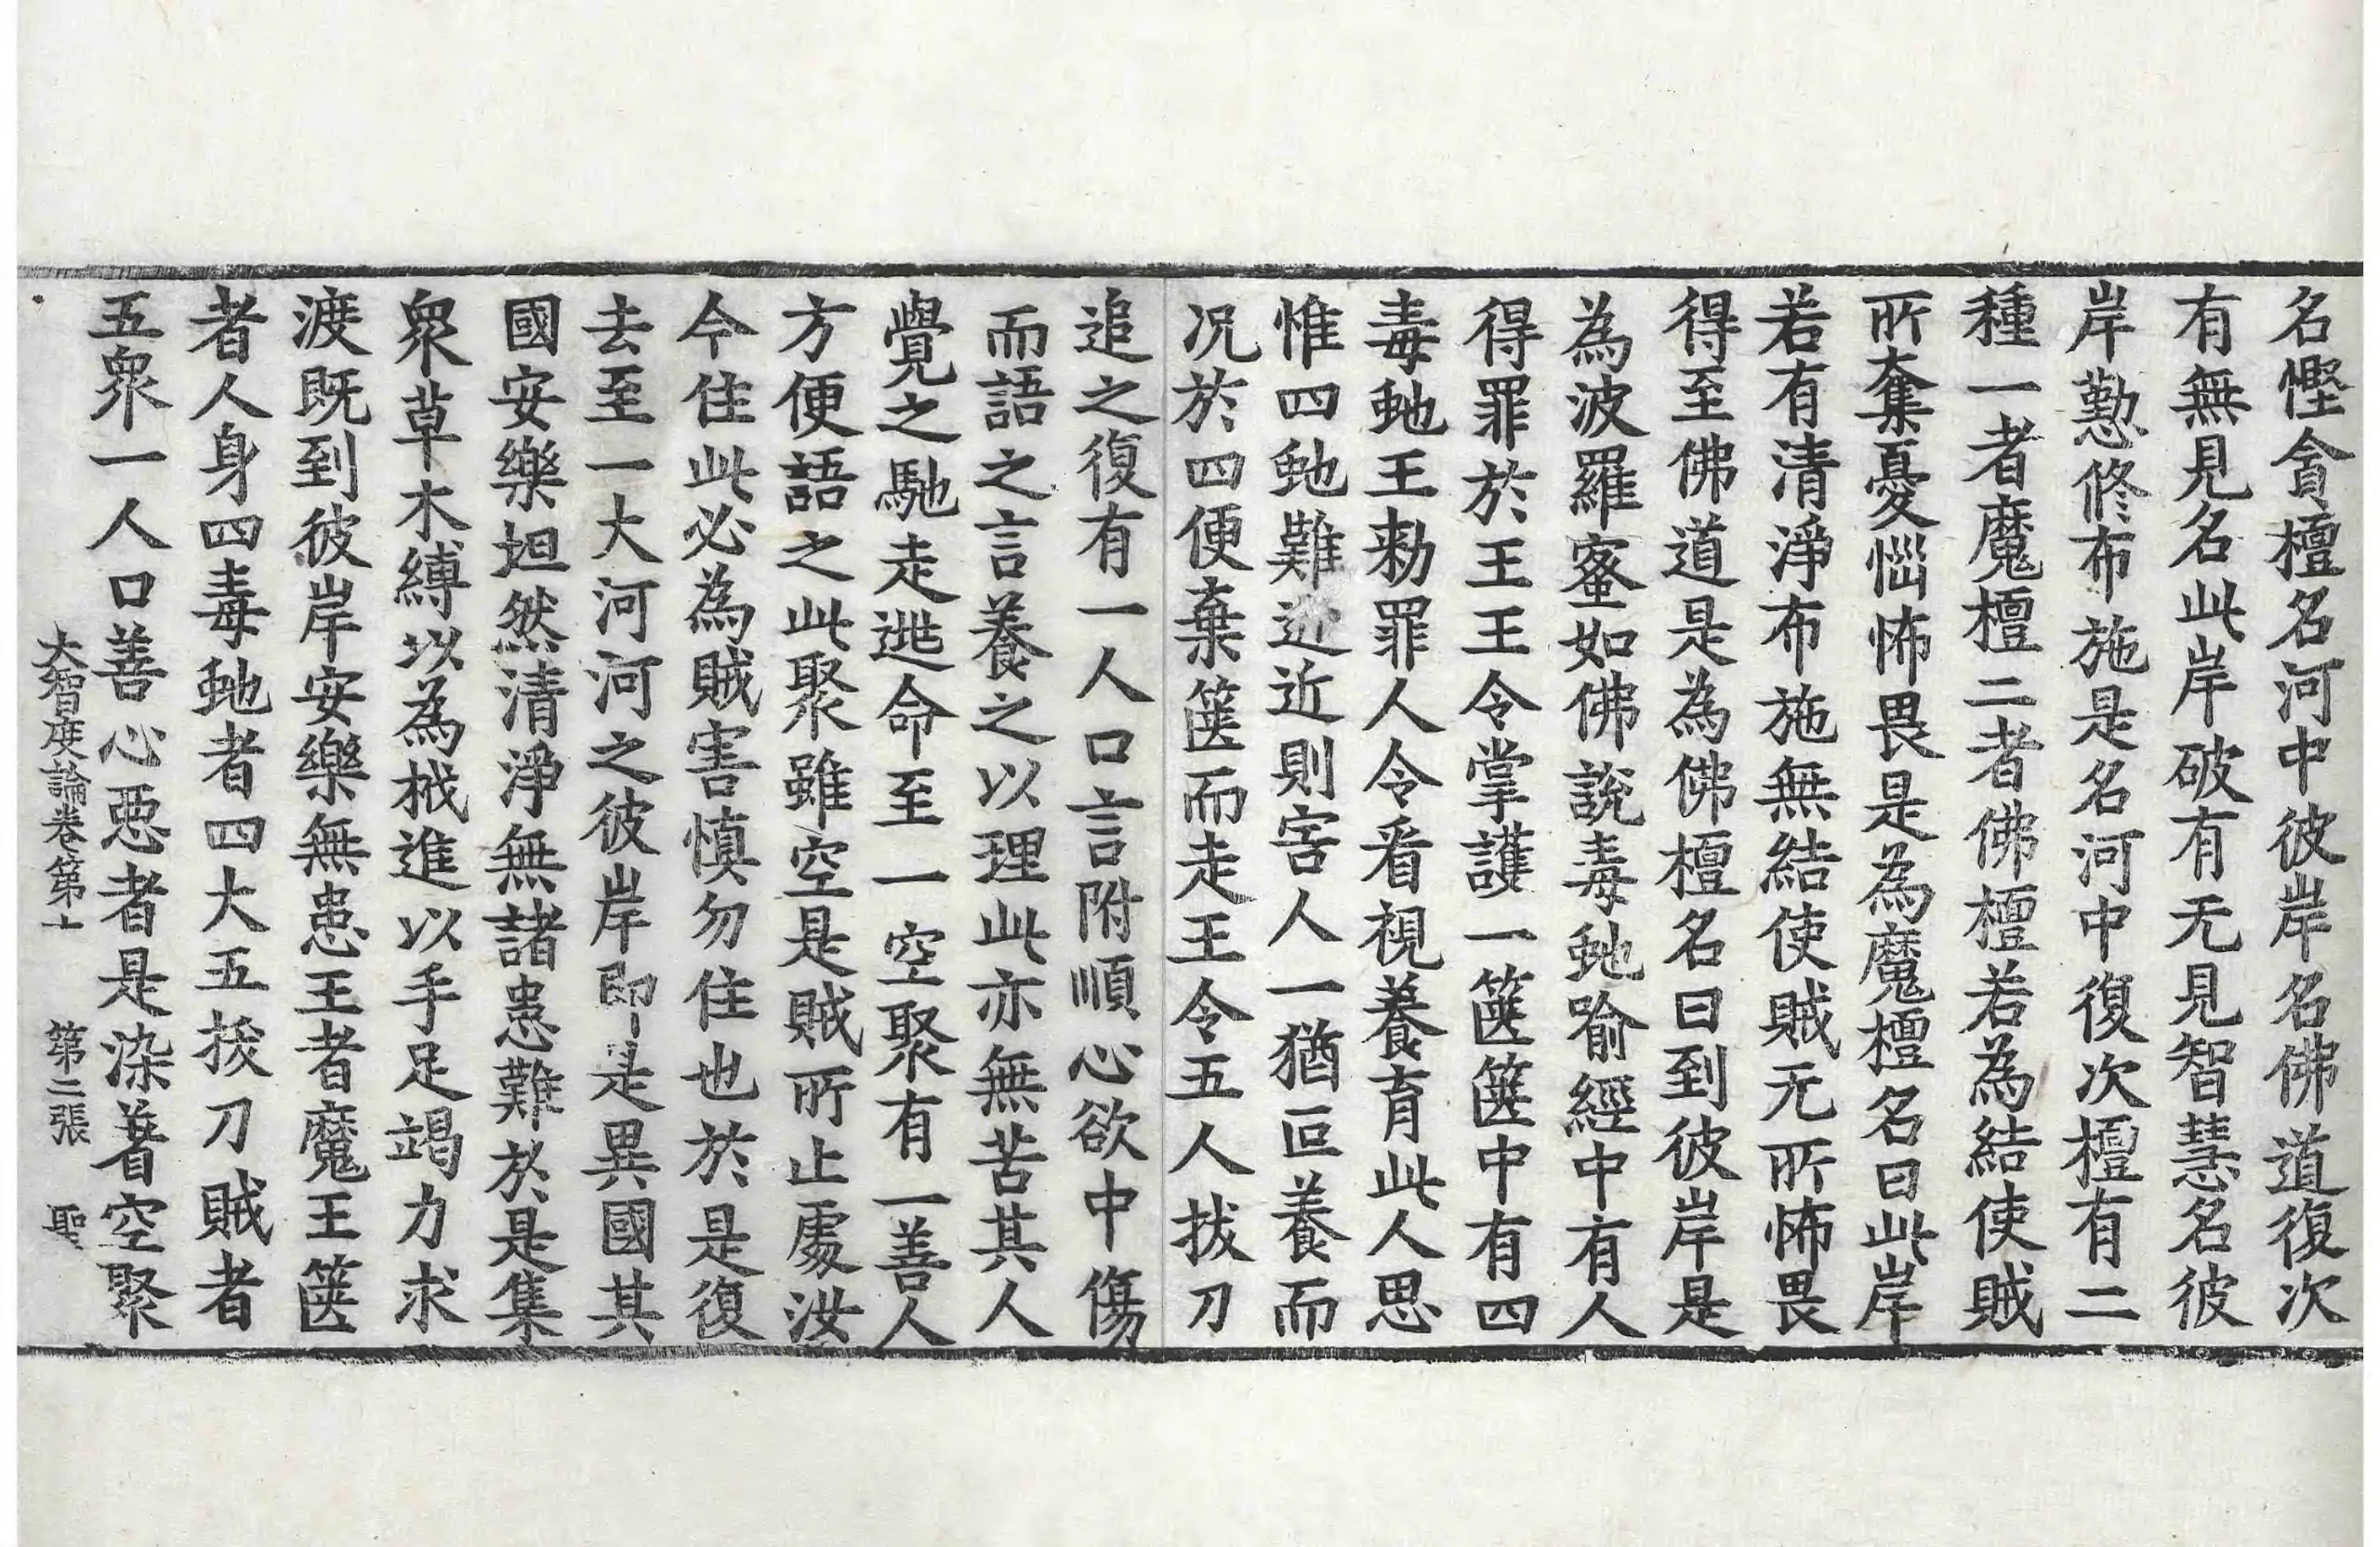 名慳貪檀名河中彼岸名佛道復次
有無見名此岸破有无見智慧名彼
岸懃修布施是名河中復次檀有二
種一者魔檀二者佛檀若為結使賊
所奪憂惱怖畏是為魔檀名曰此岸
若有清淨布施無結使賊无所怖畏
得至佛道是為佛檀名曰到彼岸是
為波羅蜜如佛說毒虵喻經中有人
得罪於王王令掌護一篋篋中有四
毒虵王勑罪人令看視養育此人思
惟四虵難近近則害人一猶叵養而
况於四便棄篋而走王令五人拔刀
追之復有一人口言附順心欲中傷
而語之言養之以理此亦無苦其人
覺之馳走逃命至一空聚有一善人
方便語之此聚雖空是賊所止處汝
今住此必為賊害慎勿住也於是復
去至一大河河之彼岸即是異國其
國安樂坦然清淨無諸患難於是集
衆草木縛以為栰進以手足竭力求
渡既到彼岸安樂無患王者魔王篋
者人身四毒虵者四大五拔刀賊者
五衆一人口善心惡者是染著空聚
大智度論卷第十二 第二張 聖